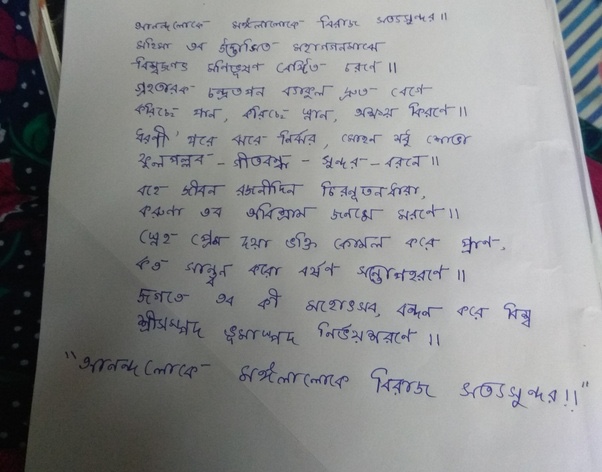 আনন্দলোকে মঙ্গলালোকে বিরাজ সত্যসুন্দর॥
মহিমা তব উদ্ভাসিত মহাগগনমাঝে
বিশ্বজগত মণিভূষণ বেষ্টিত চরণে॥
গ্রহতারক চন্দ্রতপন ব্যাকুল দ্রুত বেগে
করিছে পান, করিছে স্নান, অক্ষয় কিরণে॥
ধরণী'পরে ঝরে নির্ঝর, মোহন মধু শোভা
ফুলপল্লব - গীতবন্ধ - সুন্দর - বরনে॥
বহে জীবন রজনীদিন চিরনূতনধারা,
করুণা তব অবিশ্রাম জনমে মরণে॥
স্নেহ প্রেম দয়া ভক্তি কোমল করে প্রাণ,
কত সান্ত্বন করো বর্ষণ সন্তাপহরণে॥
জগতে তব কী মহোৎসব, বন্দন করে বিশ্ব
শ্রীসম্পদ ভূমাস্পদ নির্ভয়শরণে॥
"আনন্দলোকে মঙ্গলালোকে বিরাজ সত্যসুন্দর!!"